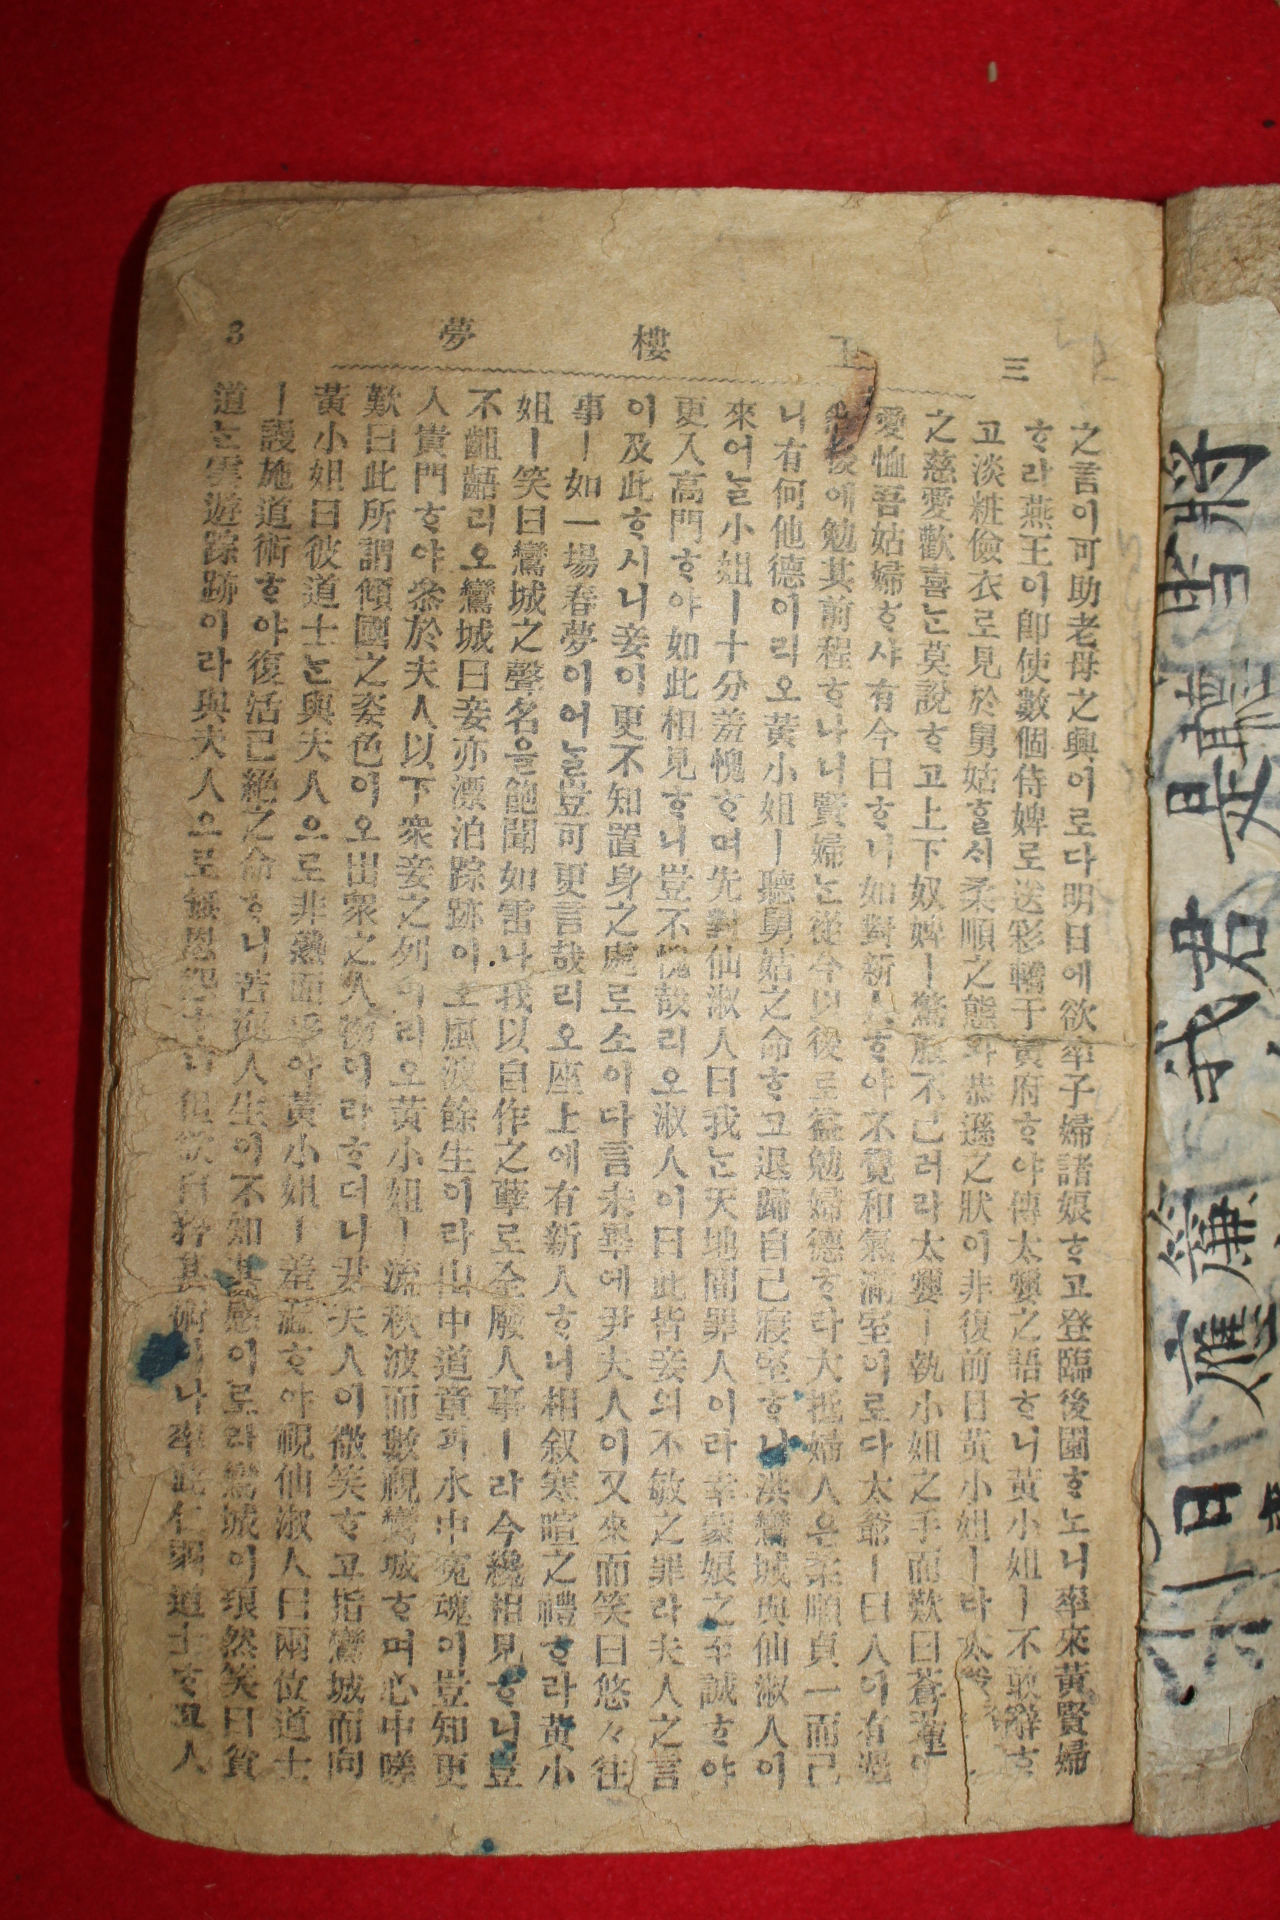 三 玉 樓 夢 3
之言이可助老母之興이로다明日에欲率子婦諸娘ᄒᆞ고登臨後園ᄒᆞ노니率來黃賢婦
ᄒᆞ라燕王이卽使數個侍婢로送彩轎于黃府ᄒᆞ야傳太孁之語ᄒᆞ니黃小姐ㅣ不敢辭ᄒᆞ
고淡粧儉衣로見於舅姑ᄒᆞᆯᄉᆡ柔順之態와恭遜之狀이非復前日黃小姐ㅣ라太
之慈愛歡喜ᄂᆞᆫ莫說ᄒᆞ고上下奴婢ㅣ驚 不已러라太孁ㅣ執小姐之手而歎曰蒼
愛恤吾姑婦ᄒᆞ샤有今日ᄒᆞ니如對新人ᄒᆞ야不覺和氣滿室이로다太爺ㅣ曰人이有過
然後에勉其前程ᄒᆞ나니賢婦ᄂᆞᆫ從今以後로益勉婦德ᄒᆞ라大抵婦人은柔順貞一而已
니有何他德이리오黃小姐ㅣ聽舅姑之命ᄒᆞ고退歸自己寢室ᄒᆞ니洪鸞城與仙淑人이
來어ᄂᆞᆯ小姐ㅣ十分羞愧ᄒᆞ며先對仙淑人曰我ᄂᆞᆫ天地間罪人이라幸蒙娘之至誠ᄒᆞ야
更入高門ᄒᆞ야如此相見ᄒᆞ니豈不愧哉리오淑人이曰此皆妾의不敏之罪라夫人之言
이及此ᄒᆞ시니妾이更不知置身之處로소이다言未畢에尹夫人이又來而笑曰悠々往
事ㅣ如一場春夢이어ᄂᆞᆯ豈可更言哉리오座上에有新人ᄒᆞ니相叙寒暄之禮ᄒᆞ라黃小
姐ㅣ笑曰鸞城之聲名을飽聞如雷나我以自作之孽로全廢人事ㅣ라今纔相見ᄒᆞ니豈
不齟齬리오鸞城曰妾亦漂泊踪跡이오風波餘生이라山中道童과水中寃魂이豈知更
入貴門ᄒᆞ야叅於夫人以下衆妾之列이리오黃小姐ㅣ流秋波而數視鸞城ᄒᆞ며心中嗟
歎曰此所謂傾國之姿色이오出衆之人物이라ᄒᆞ더니尹夫人이微笑ᄒᆞ고指鸞城而向
黃小姐曰彼道士ᄂᆞᆫ與夫人으로非熱面 야黃小姐ㅣ羞澁ᄒᆞ야視仙淑人曰兩位道士
ㅣ謾施道術ᄒᆞ야復活已絶之命ᄒᆞ니苦海人生이不知其感이로라鸞城이琅然笑曰貧
道ᄂᆞᆫ雲遊踪跡이라與夫人으로無恩怨 但欲自矜其術 나率此仁弱道士ᄒᆞ고入